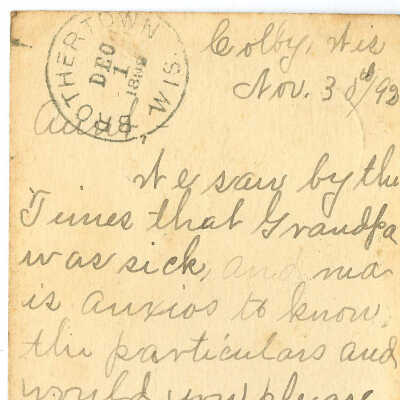 BROTHERTOWN WIS.
DEC
1
Colby, Wis
Nov. 30th/92
We saw by the
Times that Grandpa
was sick, and ma
is anxios to know
the particulars and
would you please